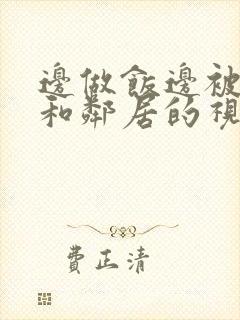 邊做飯邊被
和鄰居的視
費正清